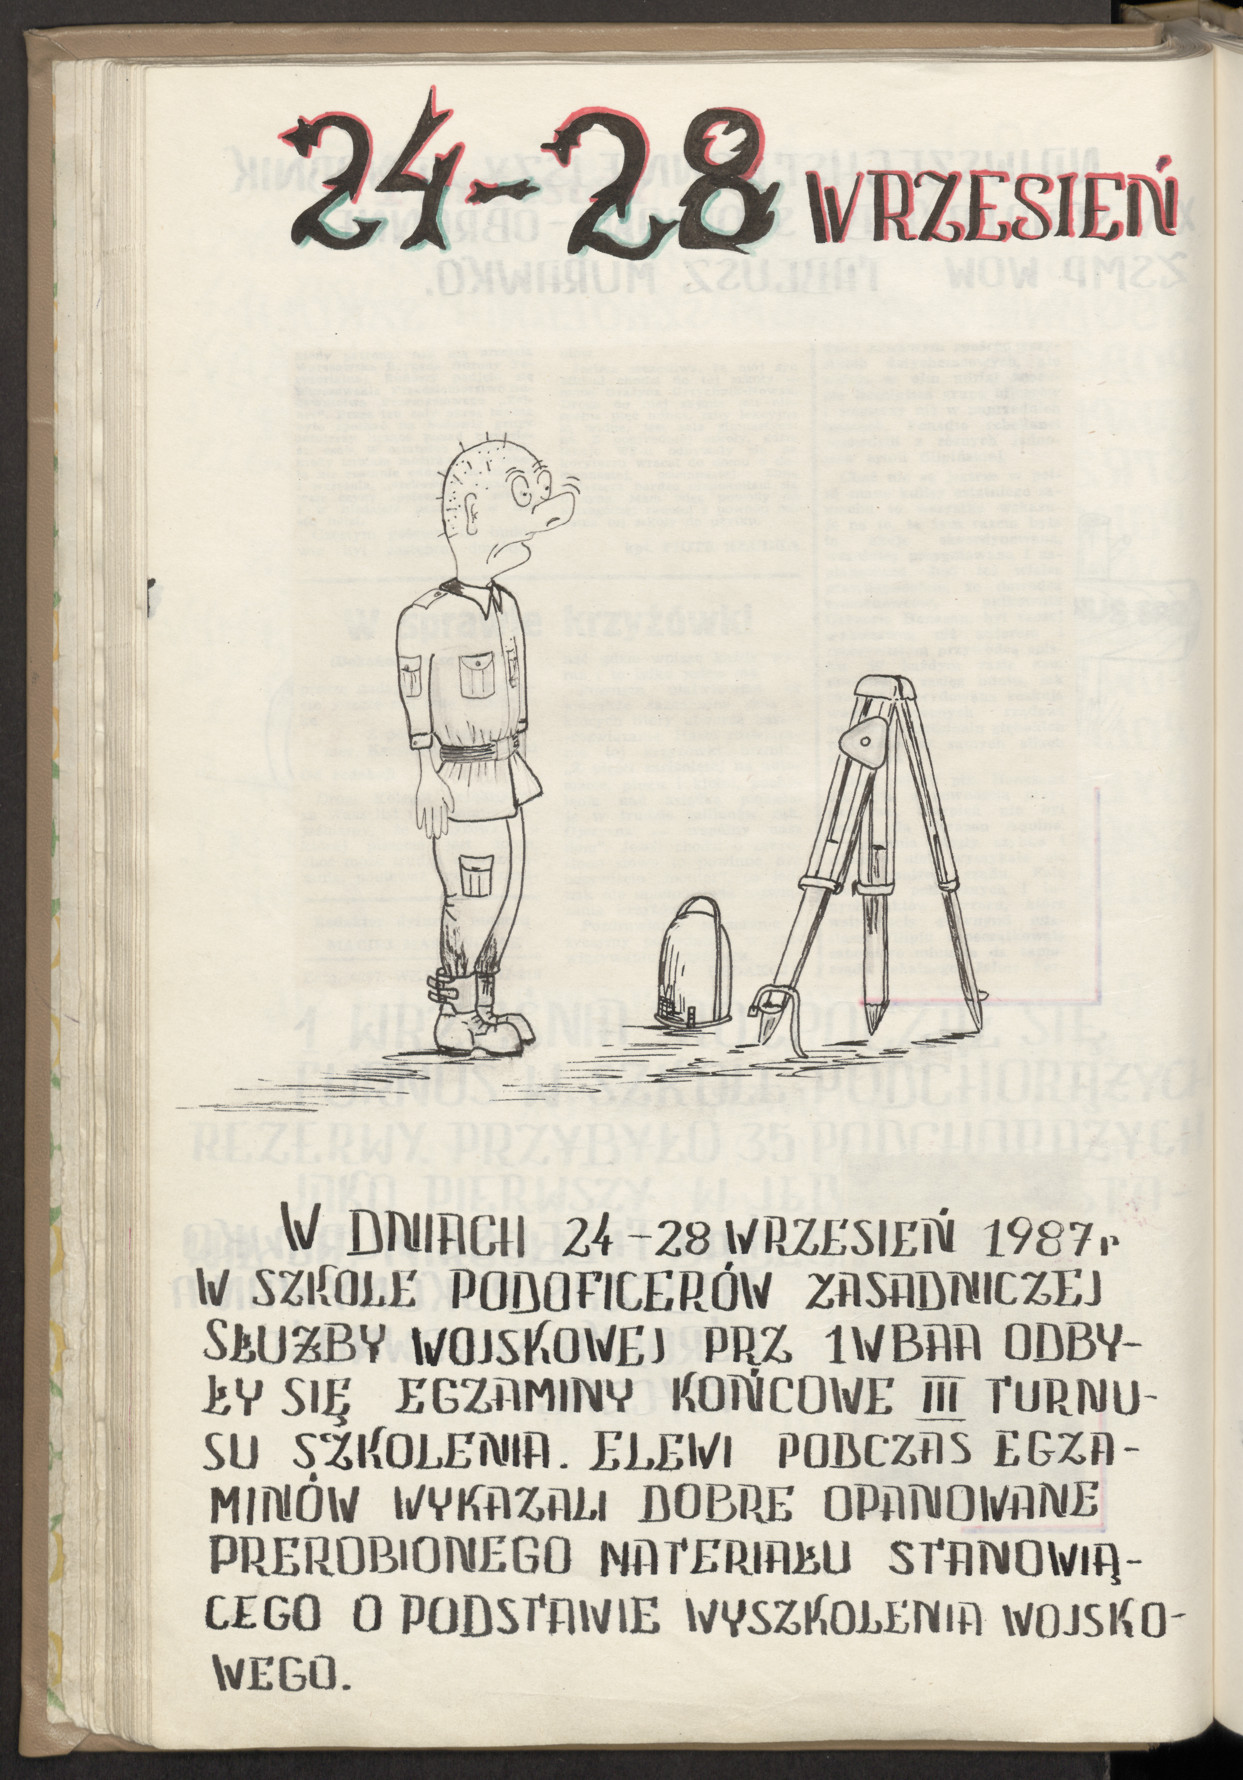 24-28 WRZESIEŃ
W DNIACH 24-28 WRZESIEŃ 1987r
W SZKOLE PODOFICERÓW ZASADNICZEJ
SŁUŻBY WOJSKOWEJ PRZ 1WBAA ODBY-
ŁY SIĘ EGZAMINY KOŃCOWE III TURNU-
SU SZKOLENIA. ELEWI PODCZAS EGZA-
MINÓW WYKAZALI DOBRE OPANOWANE
PREROBIONEGO MATERIAŁU STANOWIĄ-
CEGO O PODSTAWIE WYSZKOLENIA WOJSKO-
WEGO.